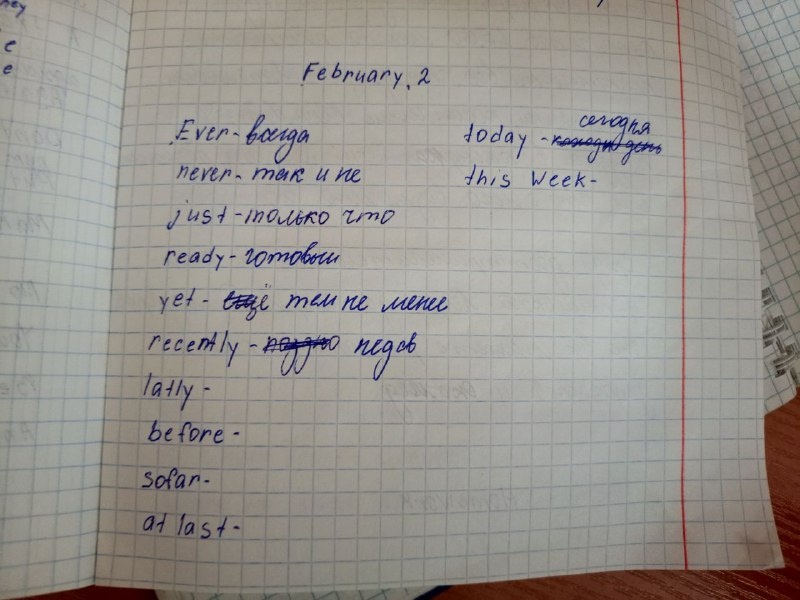 February, 2
Ever - всегда
never - так и не
just - только что
ready - готовый
yet - ещё тем не менее
recently - поздно недав
latly -
before -
sofar -
at last -
сегодня
today -
this week -